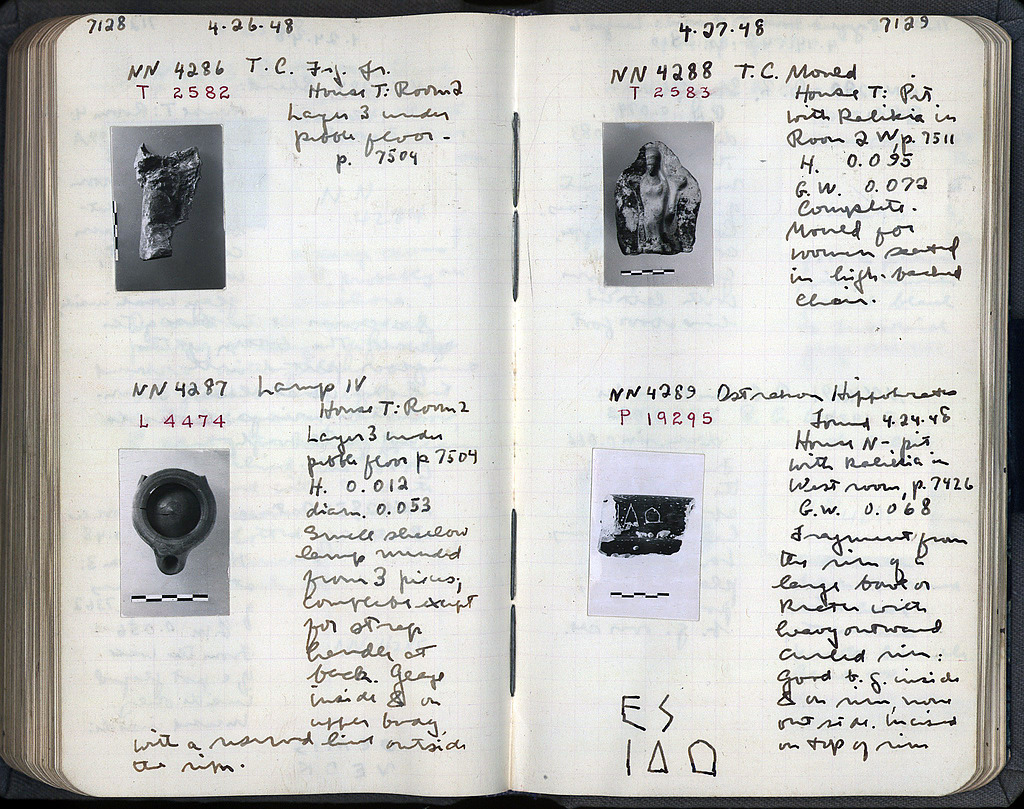 7128
4.26.48
NN 4286 T.C. Fig. fr.
T 2582
House T: Room 2
Layer 3 under
pebble floor -
p. 7504
NN 4287 Lamp IV
L 4474
House T: Room 2
Layer 3 under
pebble floor p 7504
H. 0.012
diam. 0.053
Small shallow
lamp mended
from 3 pieces;
complete except
for strap
handle at
back. Glaze
inside & on
upper body,
with a reserved line outside
the rim.
4.27.48
7129
NN 4288 T.C. Mould
T 2583
House T: Pit
with Kalikia in
Room 2 W, p. 7511
H. 0.095
G.W. 0.072
Complete.
Mould for
woman seated
in high-backed
chair.
NN 4289 Ostrakon Hippokrates
P 19295
Found 4.24.48
House N - pit
with Kalikia in
West room, p. 7426
G.W. 0.068
Fragment from
the rim of a
large bowl or
krater with
heavy outward
curled rim:
Good b.g. inside
& on rim, none
outside. Incised
on top of rim
ΕS
ΙΔΩ